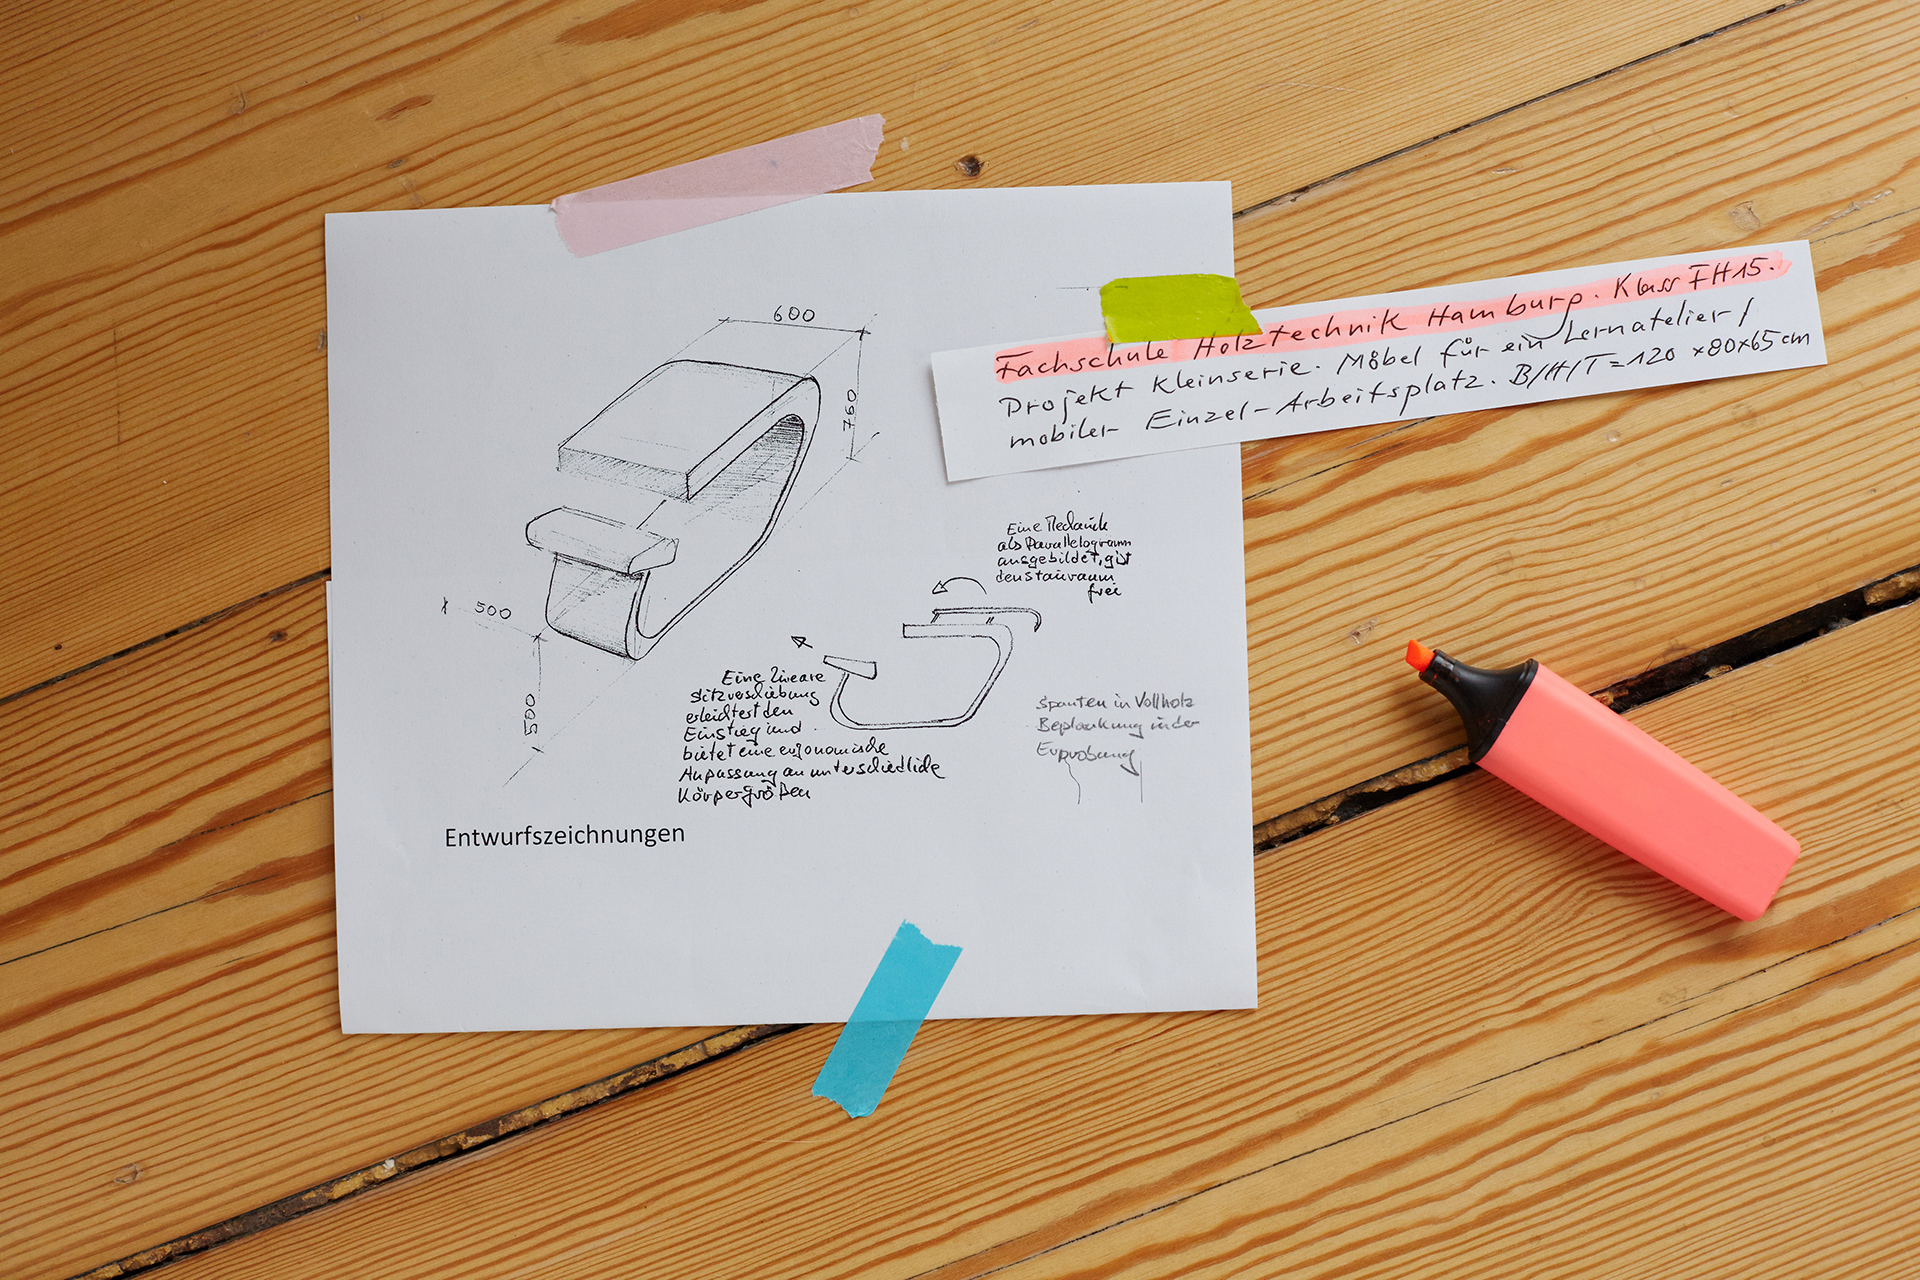 Fachschule Holztechnik Hamburg. Klass FH15.
Projekt Kleinserie. Möbel für ein Lernatelier/
mobiler Einzel-Arbeitsplatz. B/H/T=120 x80x65cm
600
760
500
500
Eine Mechanik
als Parallelogramm
ausgebildet, gibt
den Stauraum
frei
Eine lineare
Sitzverschiebung
erleichtert den
Einstieg und
bietet eine ergonomische
Anpassung an unterschiedliche
Körpergrößen
Spanten in Vollholz
Beplankung in der
Erprobung
Entwurfszeichnungen